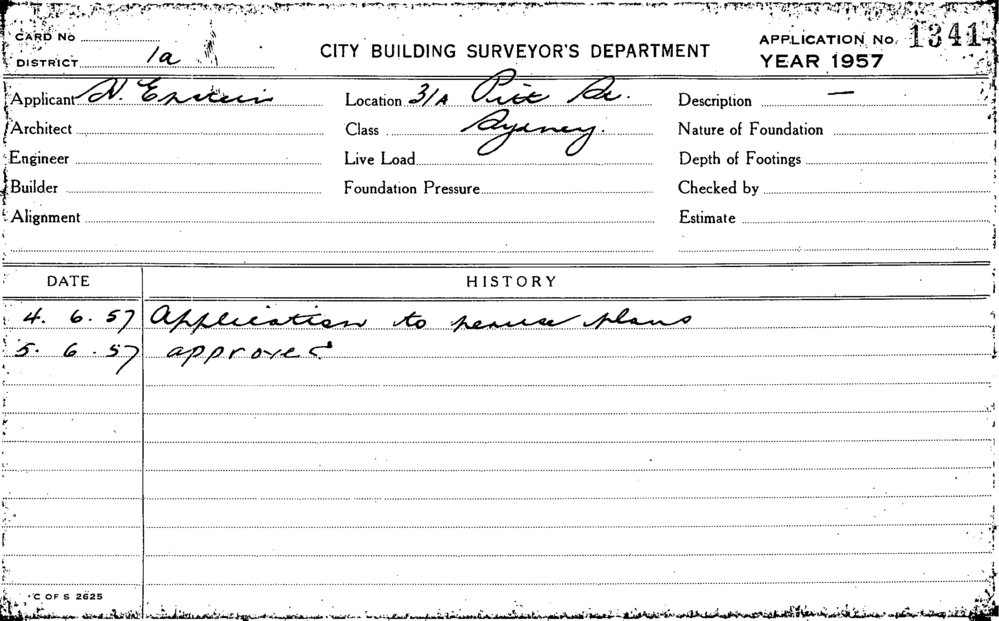 CARD No
DISTRICT 1a
CITY BUILDING SURVEYOR'S DEPARTMENT
APPLICATION No. 1341
YEAR 1957
Applicant H. Epstein Location 31A Pitt St. Description —
Architect Class Sydney. Nature of Foundation
Engineer Live Load Depth of Footings
Builder Foundation Pressure Checked by
Alignment Estimate
DATE HISTORY
4. 6. 57 Application to peruse plans
5. 6. 57 approved
C OF S 2625